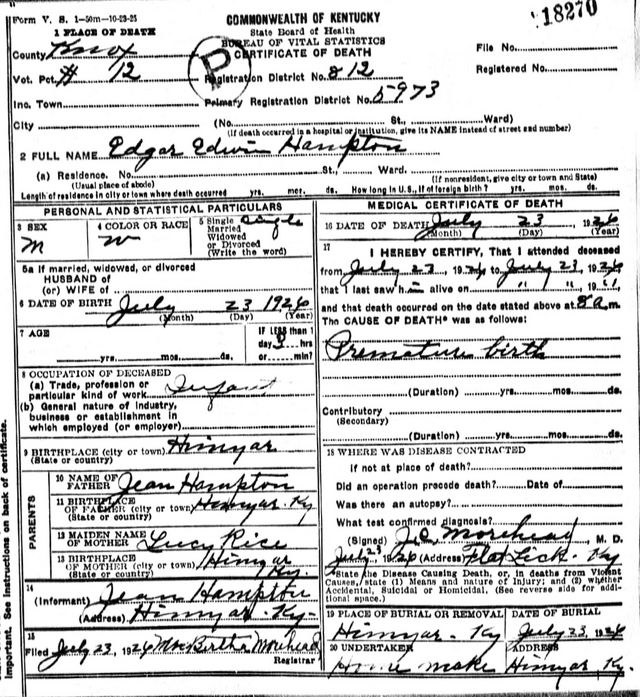 Form V. S. 1-50m-10-23-25
COMMONWEALTH OF KENTUCKY
18270
1 PLACE OF DEATH
State Board of Health
BUREAU OF VITAL STATISTICS
CERTIFICATE OF DEATH
County Knox
File No.
Vot. Pct. # 12
P
Registration District No. 812
Registered No.
Inc. Town
Primary Registration District No. 5973
City (No. St., Ward)
(If death occurred in a hospital or institution, give its NAME instead of street and number)
2 FULL NAME Edgar Edwin Hampton
(a) Residence. No. St., Ward.
(Usual place of abode) (If nonresident, give city or town and State)
Length of residence in city or town where death occurred yrs. mos. ds. How long in U.S., if of foreign birth? yrs. mos. ds.
PERSONAL AND STATISTICAL PARTICULARS
3 SEX
M
4 COLOR OR RACE
W
5 Single
Married
Widowed
or Divorced
(Write the word)
Single
5a If married, widowed, or divorced
HUSBAND of
(or) WIFE of
6 DATE OF BIRTH July 23 1926
(Month) (Day) (Year)
7 AGE
yrs. mos. ds.
IF LESS than 1
day hrs
or min?
8 OCCUPATION OF DECEASED
(a) Trade, profession or
particular kind of work Infant
(b) General nature of industry,
business or establishment in
which employed (or employer)
9 BIRTHPLACE (city or town) Himyar
(State or country)
PARENTS
10 NAME OF
FATHER Jean Hampton
11 BIRTHPLACE
OF FATHER (city or town) Himyar Ky
(State or country)
12 MAIDEN NAME
OF MOTHER Lucy Rice
13 BIRTHPLACE
OF MOTHER (city or town) Himyar
(State or country) Ky
14
(Informant) Jean Hampton
(Address) Himyar Ky.
15
Filed July 23, 1926 Mrs Birtha Morehead
Registrar
MEDICAL CERTIFICATE OF DEATH
16 DATE OF DEATH July 23, 1926
(Month) (Day) (Year)
17
I HEREBY CERTIFY, That I attended deceased
from July 23, 1926 to July 23, 1926
that I last saw h alive on " " 19"
and that death occurred on the date stated above at 8 a.m.
The CAUSE OF DEATH* was as follows:
Premature birth
(Duration) yrs. mos. ds.
Contributory
(Secondary)
(Duration) yrs. mos. ds.
18 WHERE WAS DISEASE CONTRACTED
if not at place of death?
Did an operation precede death? Date of
Was there an autopsy?
What test confirmed diagnosis?
(Signed) J.C. Morehead, M. D.
July 23 1926 (Address) Flat Lick Ky
*State the Disease Causing Death, or, in deaths from Violent
Causes, state (1) Means and nature of Injury; and (2) whether
Accidental, Suicidal or Homicidal. (See reverse side for addi-
tional space.)
19 PLACE OF BURIAL OR REMOVAL
Himyar - Ky
DATE OF BURIAL
July 23, 1926
20 UNDERTAKER
Home make
ADDRESS
Himyar Ky
Important. See instructions on back of certificate.